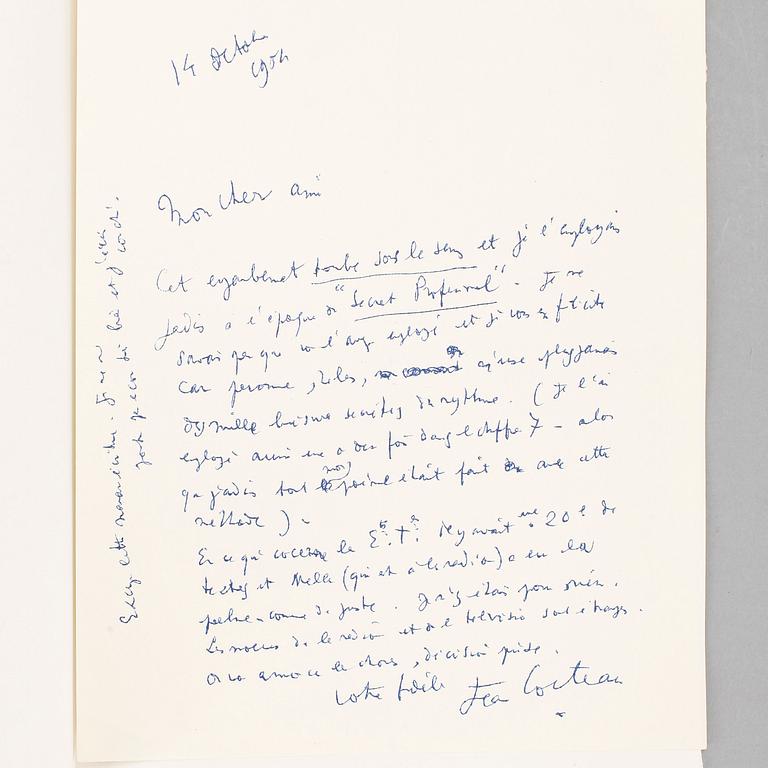 14 Octobre
1954
Mon cher ami
Cet enjambement tombe sous le sens et je l'employais
jadis à l'époque de "Secret Professionnel". Je ne
savais pas que vous l'aviez employé et je vous en félicite
car personne, hélas, n'use plus jamais
des mille secrètes du rythme. (Je l'ai
employé aussi une ou deux fois dans le chiffre 7 - alors
que jadis tout mon poème était fait avec cette
méthode).
En ce qui concerne la il y avait 20 de
textes et Melle (qui est à la radio) a eu la
palme - comme de juste. Je n'y étais pour rien.
Les mœurs de la radio et de la télévision sont étranges.
On vous annonce la chose, décision prise.
Votre fidèle Jean Cocteau
Excusez cette mauvaise écriture. Je ne
garde encore très et j'écris
couché.